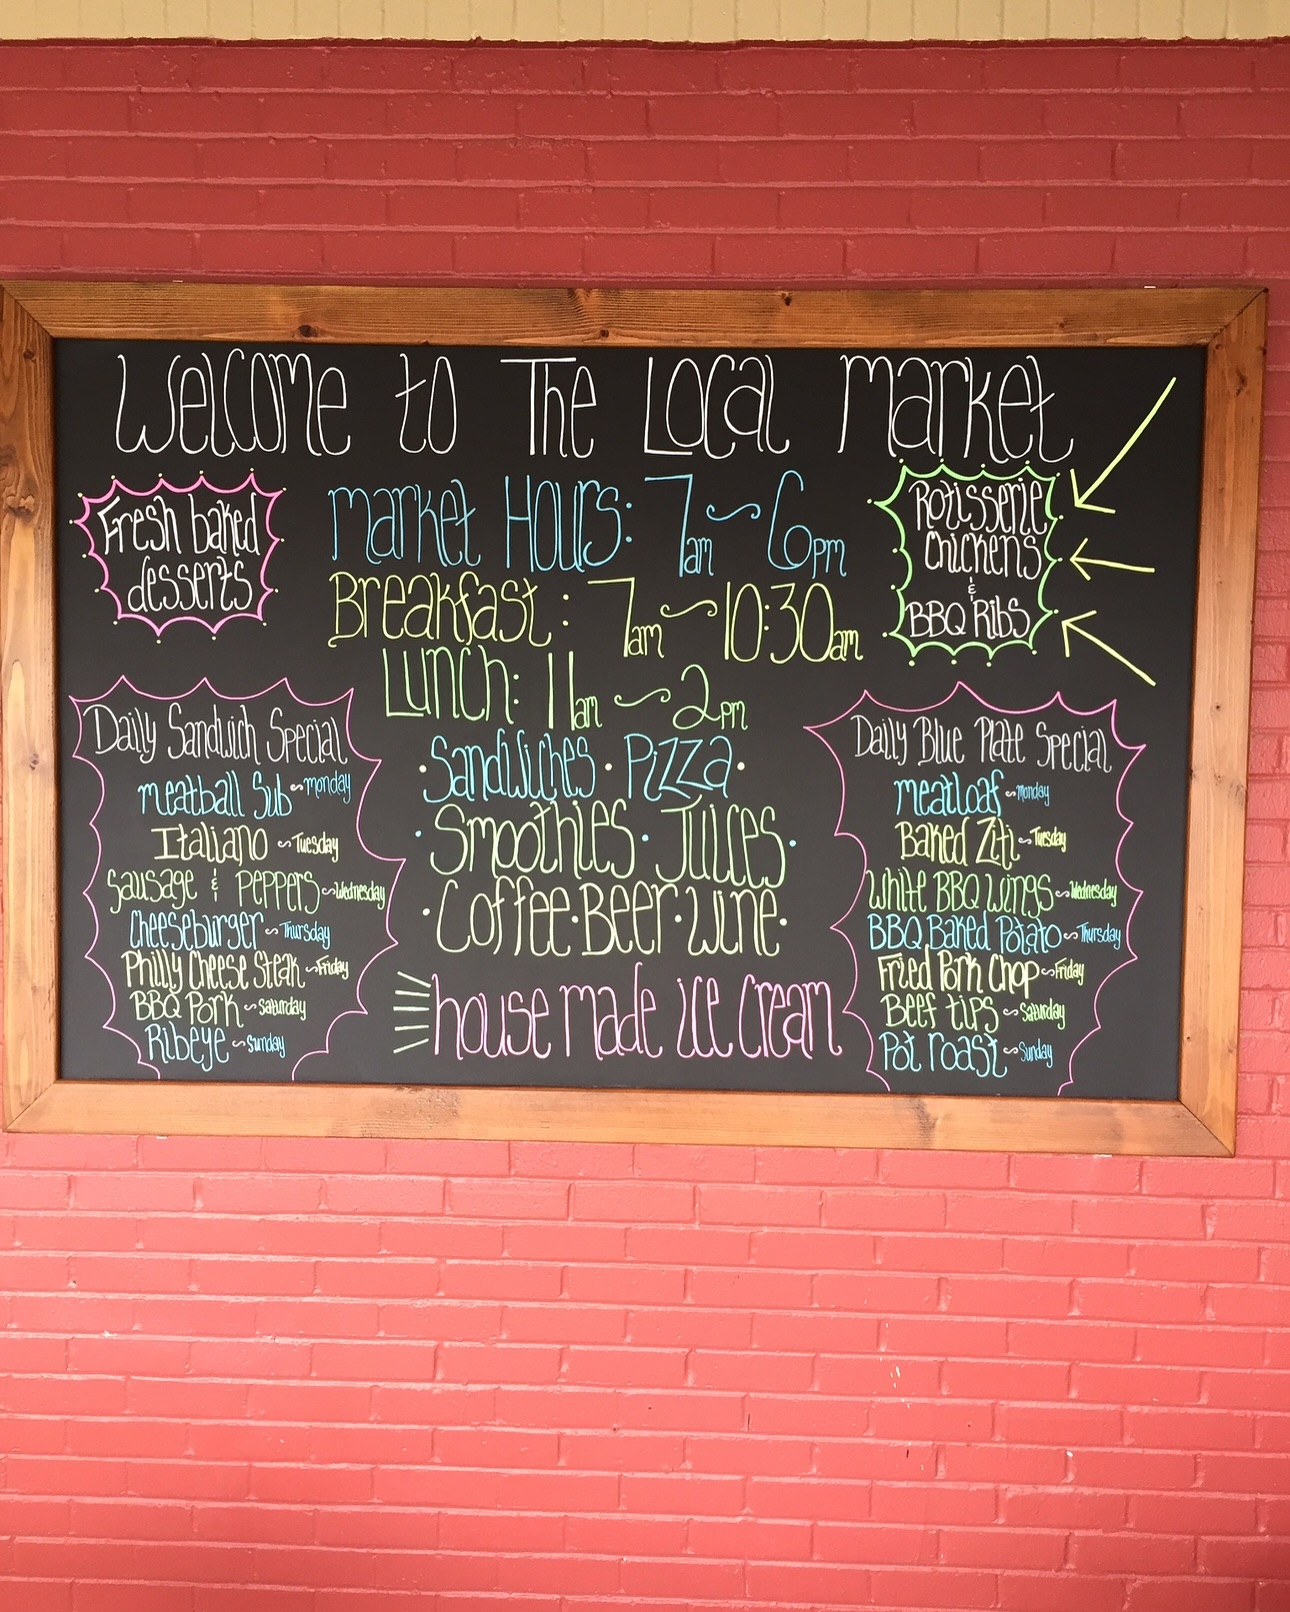 Welcome to The Local Market
Fresh baked
desserts
Market Hours: 7am ~ 6pm
Breakfast: 7am ~ 10:30am
Lunch: 11am ~ 2pm
Rotisserie
Chickens
&
BBQ Ribs
Daily Sandwich Special
Meatball Sub ~ Monday
Italiano ~ Tuesday
Sausage & Peppers ~ Wednesday
Cheeseburger ~ Thursday
Philly Cheese Steak ~ Friday
BBQ Pork ~ Saturday
Ribeye ~ Sunday
· Sandwiches · Pizza ·
· Smoothies · Juices ·
· Coffee · Beer · Wine ·
house made ice cream
Daily Blue Plate Special
Meatloaf ~ Monday
Baked Ziti ~ Tuesday
White BBQ Wings ~ Wednesday
BBQ Baked Potato ~ Thursday
Fried Pork Chop ~ Friday
Beef tips ~ Saturday
Pot roast ~ Sunday